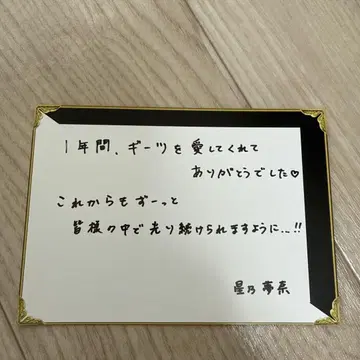 1年間、ギーツを愛してくれて
ありがとうでした♡
これからもずーっと
皆様の中で光り続けられますように...!!
星乃夢奈